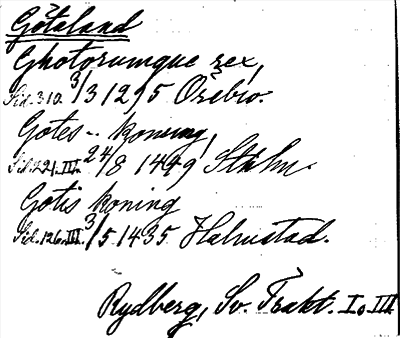 Götaland
Ghotorumque rex,
Sid. 310. 3/3 1295 Örebro.
Gotes - koning,
Sid. 221. III. 24/8 1449 Sthlm.
Gotis koning
Sid. 126. III. 3/5 1435 Halmstad.
Rydberg, Sv. Trakt. I o. III